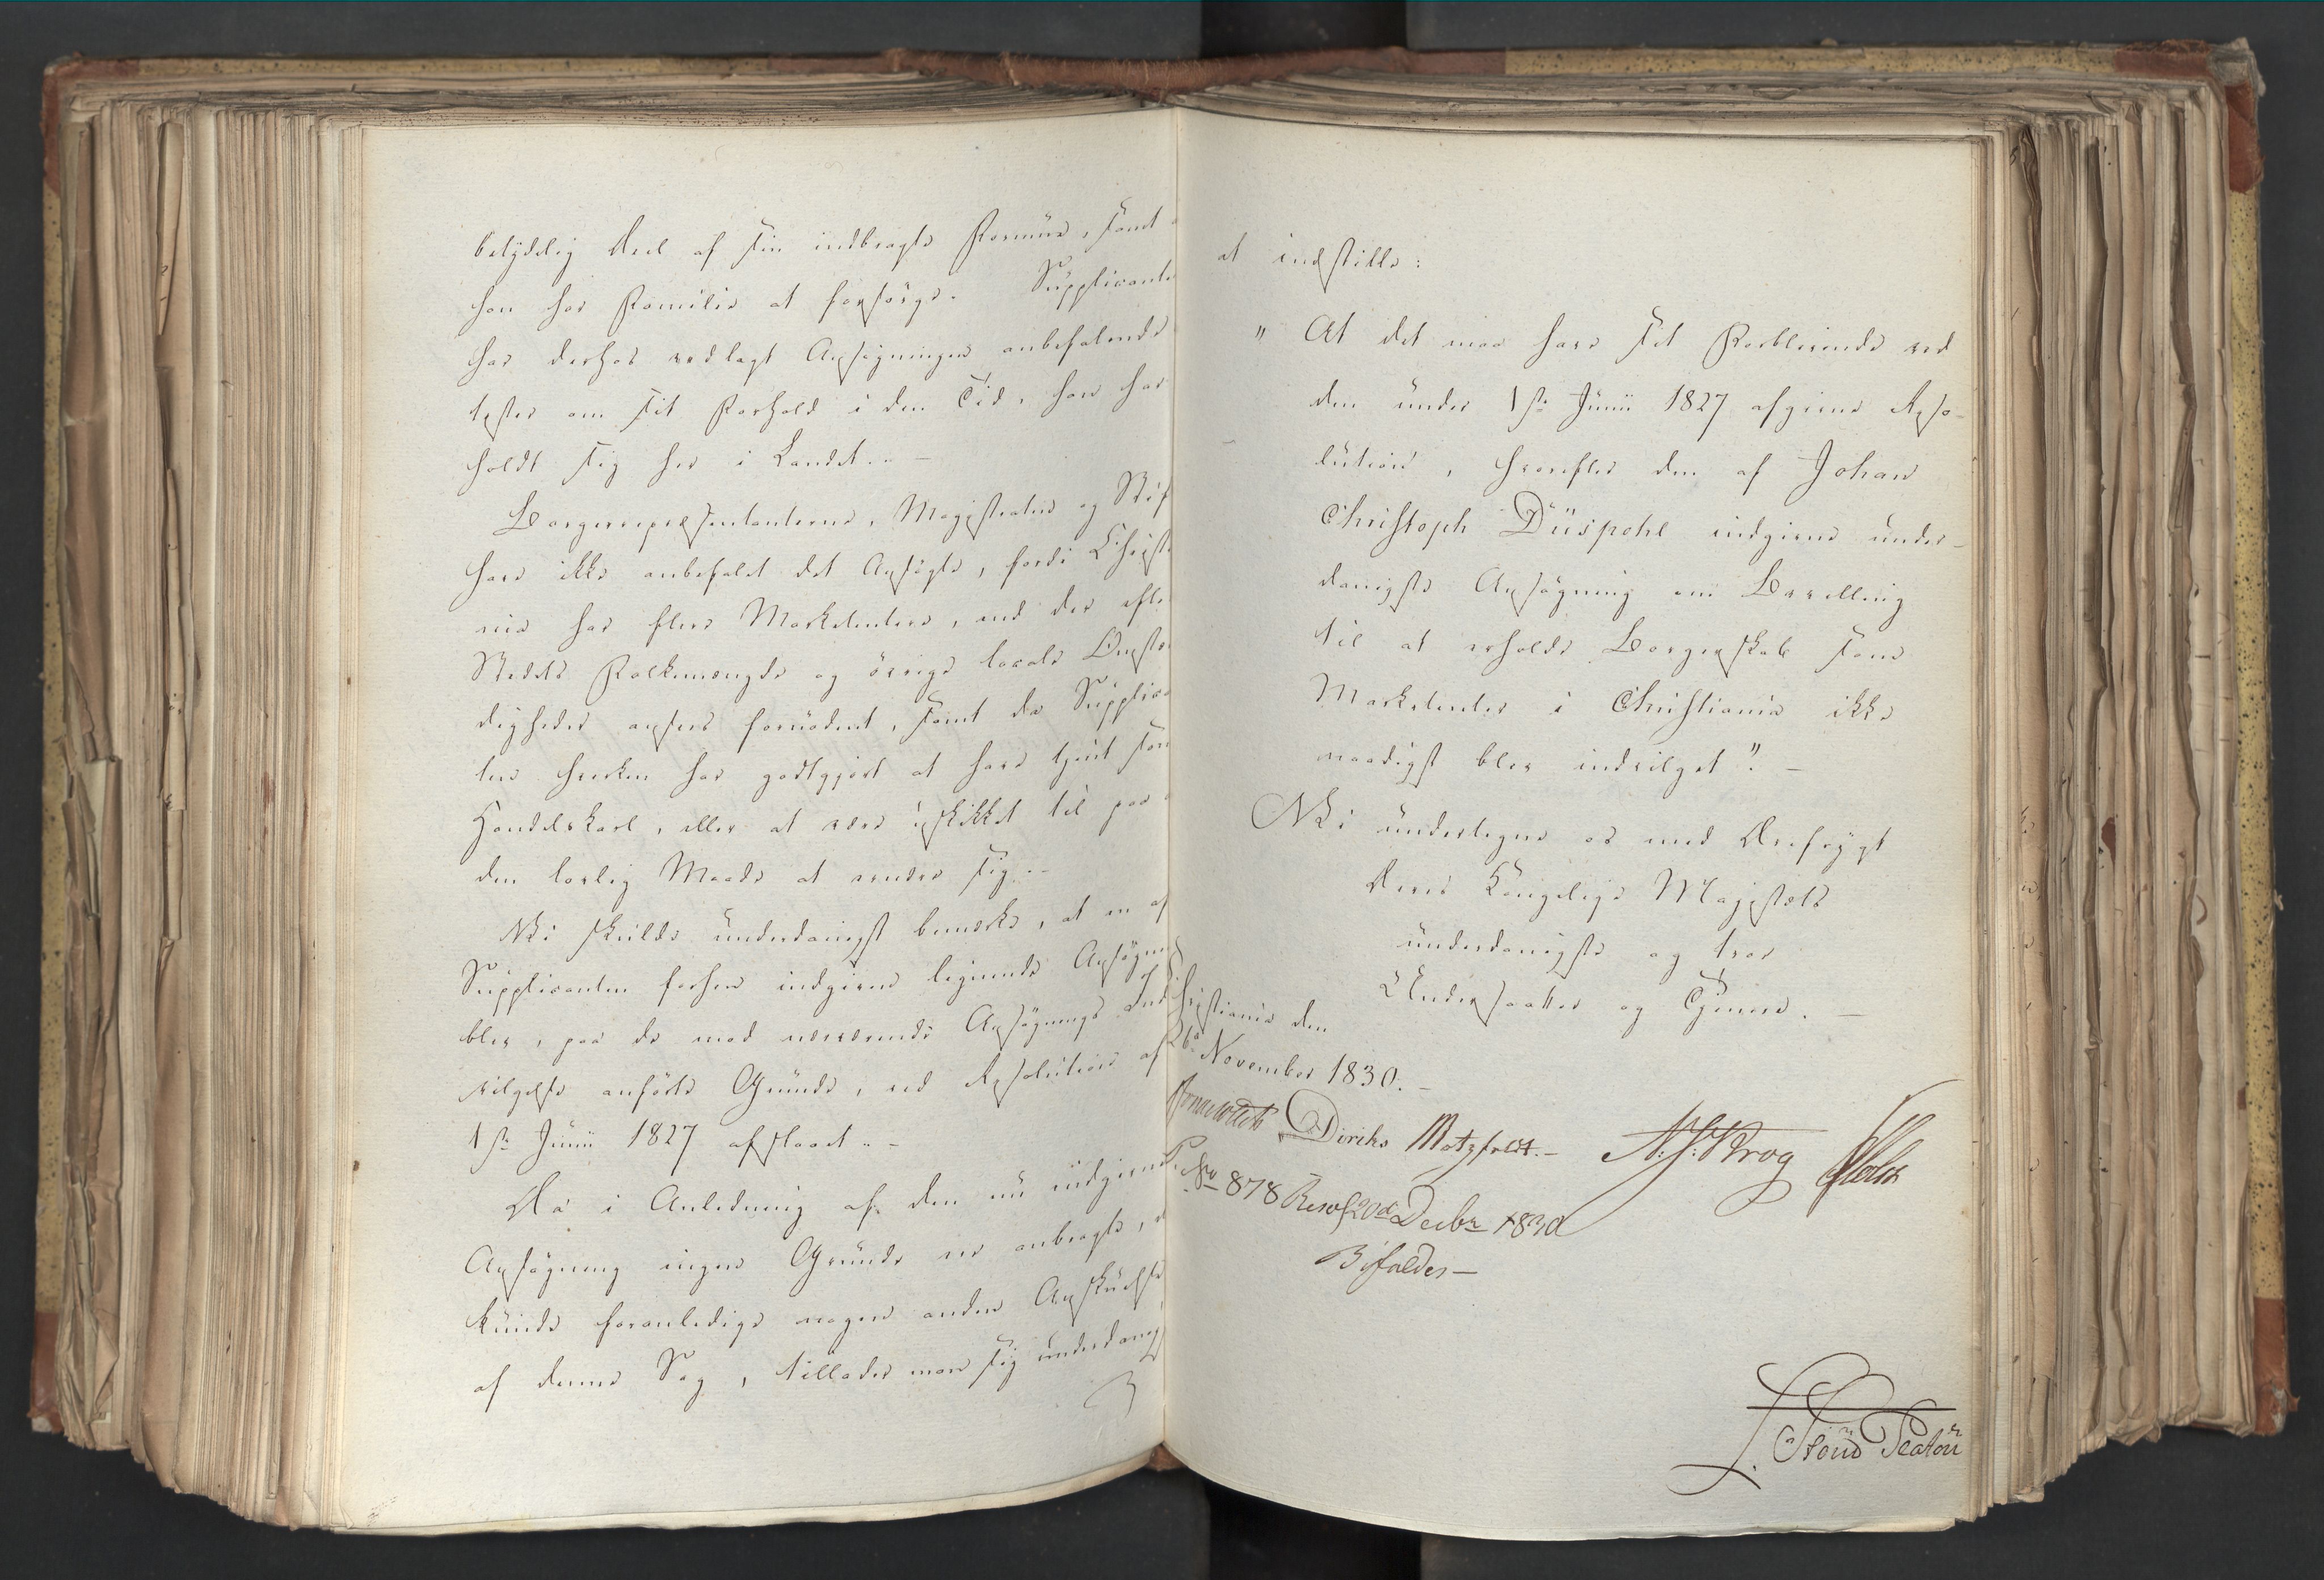 betydelig Deel af sin indbragte Formue, samt
han har Familie at forsørge. Supplicante
har derhos vedlagt Ansøgningen anbefalende
tester om sit Forhold i den Tid, han har
holdt sig her i Landet. -
Borgerrepræsentanterne, Magistraten og Stif
have ikke anbefalet det Ansøgte, fordi Christi
nia har flere Marketentere, end der efter
Stedets Folkemængde og øvrige locale Omstæn
digheder ansees fornødent, samt da Supplican
ten hverken har godtgjort at have tjent som
Handelskarl, eller at være uskikket til paa
den lovlig Maade at ernære sig. -
Vi skulde underdanigst bemærke, at en af
Supplicanten forhen indgiven lignende Ansøgn
blev, paa de mod nærværende Ansøgnings Ind
vilgelse anførte Grunde, ved Resolution af
1ste Junii 1827 afslaaet. -
Da i Anledning af den nu indgivne
Ansøgning ingen Grunde ere anbragte, d
kunde foranledige nogen anden Anskuelse
af denne Sag, tillader man sig underdanig
at indstille:
" At det maa have sit Forblivende ved
den under 1ste Junii 1827 afgivne Reso-
lution, hvorefter den af Johan
Christoph Düspohl indgivne under-
danigste Ansøgning om Bevilling
til at erholde Borgerskab som
Marketenter i Christiania ikke
naadigst blev indvilget". -
Vi undertegne os med Ærefrygt
Deres Kongelige Majestæts
underdanigste og troe
Undersaatter og Tjenere. -
Christiania den
26de November 1830. -
Diriks Motzfeldt. - N:J:Krog Holst
P. No 878 Resol 20de Decbr 1830
Bifaldes -